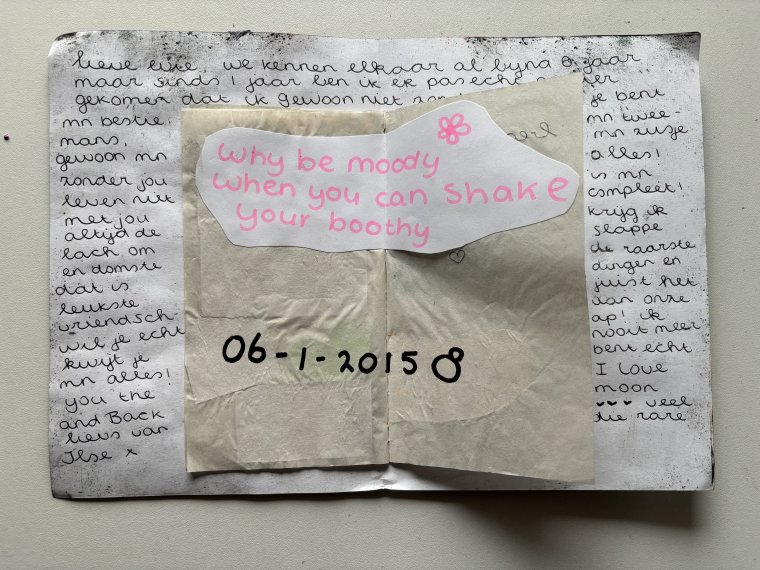 lieve evie, we kennen elkaar al bijna 6 jaar
maar sinds 1 jaar ben ik er pas echt
gekomen dat ik gewoon niet zon je bent
mn bestie, mn twee-
mans, mn zusje
gewoon mn alles!
zonder jou is mn
leven niet compleet!
met jou krijg ik
altijd de slappe
lach om de raarste
en domste dingen en
dat is juist het
leukste van onze
vriendsch ap! ik
wil je echt nooit meer
kwijt je bent echt
mn alles! I love
you the moon
and Back veel
lievs van die rare
Ilse x
Why be moody
when you can shake
your boothy
06-1-2015